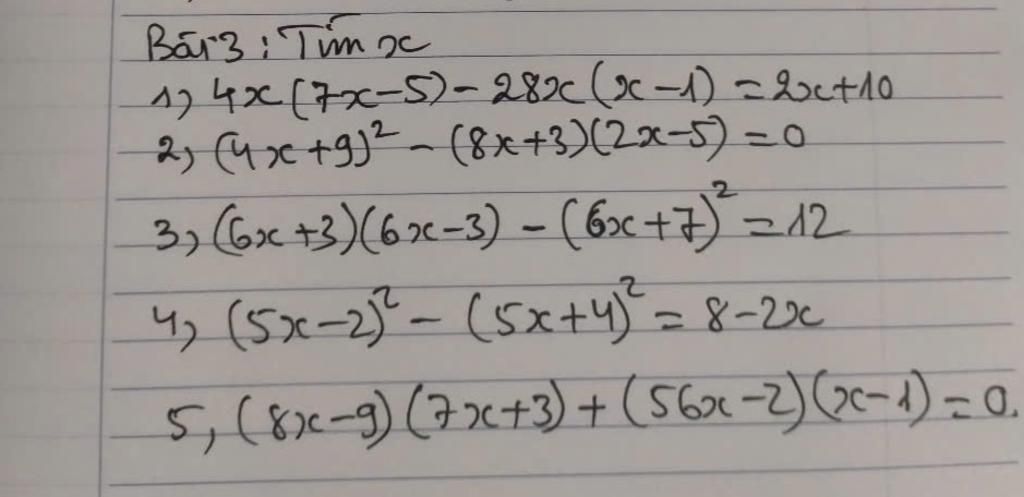 Bài 3 : Tìm x
1, 4x(7x-5) - 28x(x-1) = 2x+10
2, (4x+9)² - (8x+3)(2x-5) = 0
3, (6x+3)(6x-3) - (6x+7)² = 12
4, (5x-2)² - (5x+4)² = 8-2x
5, (8x-9)(7x+3) + (56x-2)(x-1) = 0.